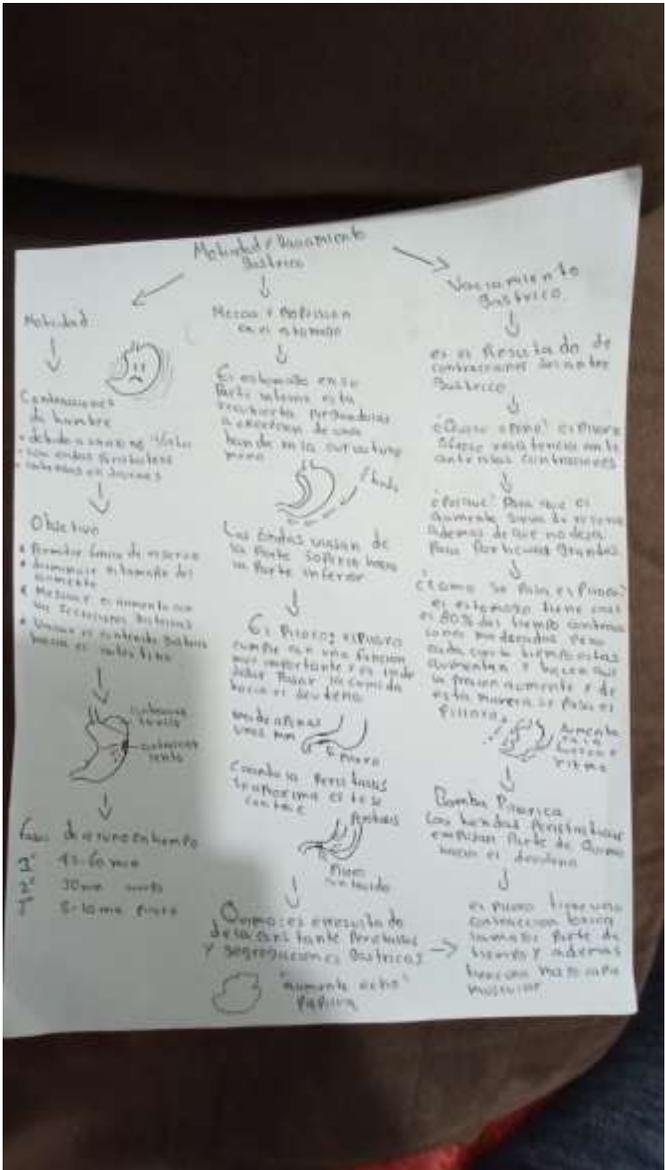 Motilidad / Vaciamiento
Gastrico
Motilidad
Contracciones
de hambre
Objetivo
• Permitir función de reserva
• disminuir el tamaño del
alimento
• Mezclar el alimento con
las secreciones gastricas
• Vaciar el contenido gastrico
hacia el intestino
Fases de ayuno en tiempo
1° 45-60 min
2° 30 min
3° 5-10 min
Mezcla y Propulsion
en el estomago
El estomago en su
Parte interna esta
recubierta por glandulas
a excepcion de una
banda en la curvatura
menor
Las Ondas viajan de
la Parte superior hacia
la Parte inferior
El Piloro: el piloro
cumple con una función
muy importante y es
dejar Pasar la comida
hacia el duodeno
mide apenas
unos mm
Piloro
Cuando la Peristalsis
se aproxima este se
contrae
Peristalsis
Piloro
contraido
Quimo: es el resultado
de la constante Peristalsis
y segregaciones Gastricas
"alimento echo"
Papilla
Vaciamiento
gastrico
es el Resultado de
contracciones del antro
Gastrico
¿Quien se opone? el Piloro
ofrece resistencia ante
ante las contracciones
¿Porque? Para que el
alimento sirva de reserva
ademas de que no deja
Pasar Particulas grandes.
¿Como se Pasa el Piloro?
el estomago tiene casi
el 80% del tiempo contrac
ciones moderadas Pero
cada cierto tiempo estas
aumentan y hacen que
la presion aumente y de
esta manera se Pasa el
Piloro.
Aumenta
fuerza y
ritmo
Bomba Pilorica
Las bandas Peristalticas
empujan Parte de Quimo
hacia el duodeno
el Piloro tiene una
contraccion tonica
la mayor Parte de
tiempo y ademas
tiene una mayor capa
muscular